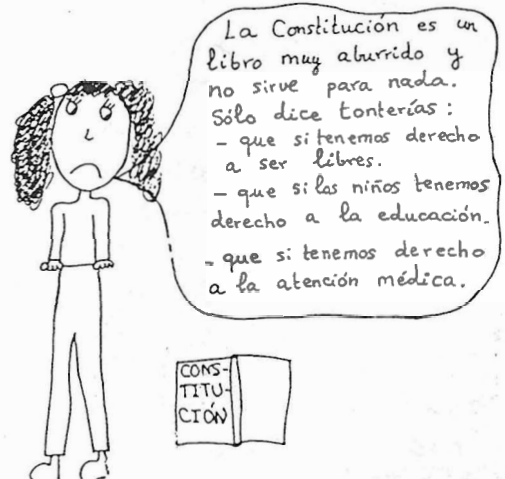 La Constitución es un
libro muy aburrido y
no sirve para nada.
Sólo dice tonterías:
- que si tenemos derecho
a ser libres.
- que si los niños tenemos
derecho a la educación.
- que si tenemos derecho
a la atención médica.
CONS-
TITU-
CIÓN